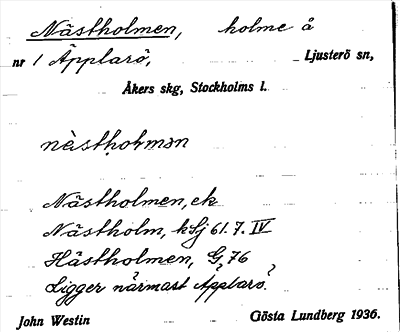 Nästholmen, holme å
nr 1 Äpplarö, Ljusterö sn,
Åkers skg, Stockholms l.
nàsthoḷmən
Nästholmen, ek
Nästholm, kSj 61. 7. IV
Hästholmen, G, 76
Ligger närmast Äpplarö.
John Westin Gösta Lundberg 1936.